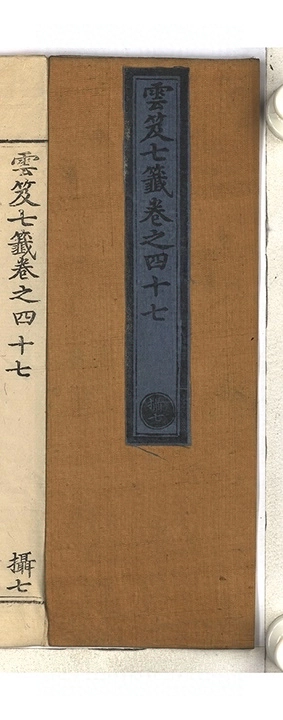 雲笈七籤卷之四十七
攝七
雲笈七籤卷之四十七
攝七